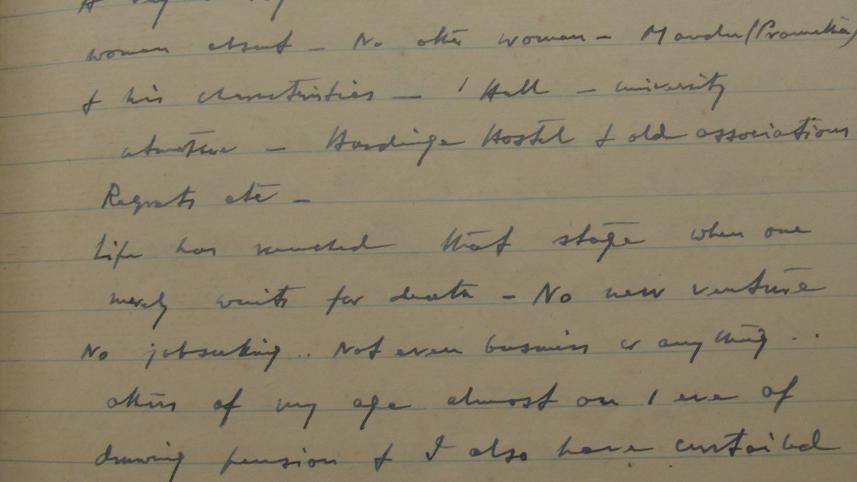 woman absent – No other woman – Mandu (Prometha)
& his characteristics – 1 Hall – university
– Hardinge Hostel & old associations
Regrets etc –
Life has reached that stage when one
merely waits for death – No new venture
No jobseeking .. Not even business or anything ..
others of my age almost on 1 eve of
drawing pension & I also have curtailed